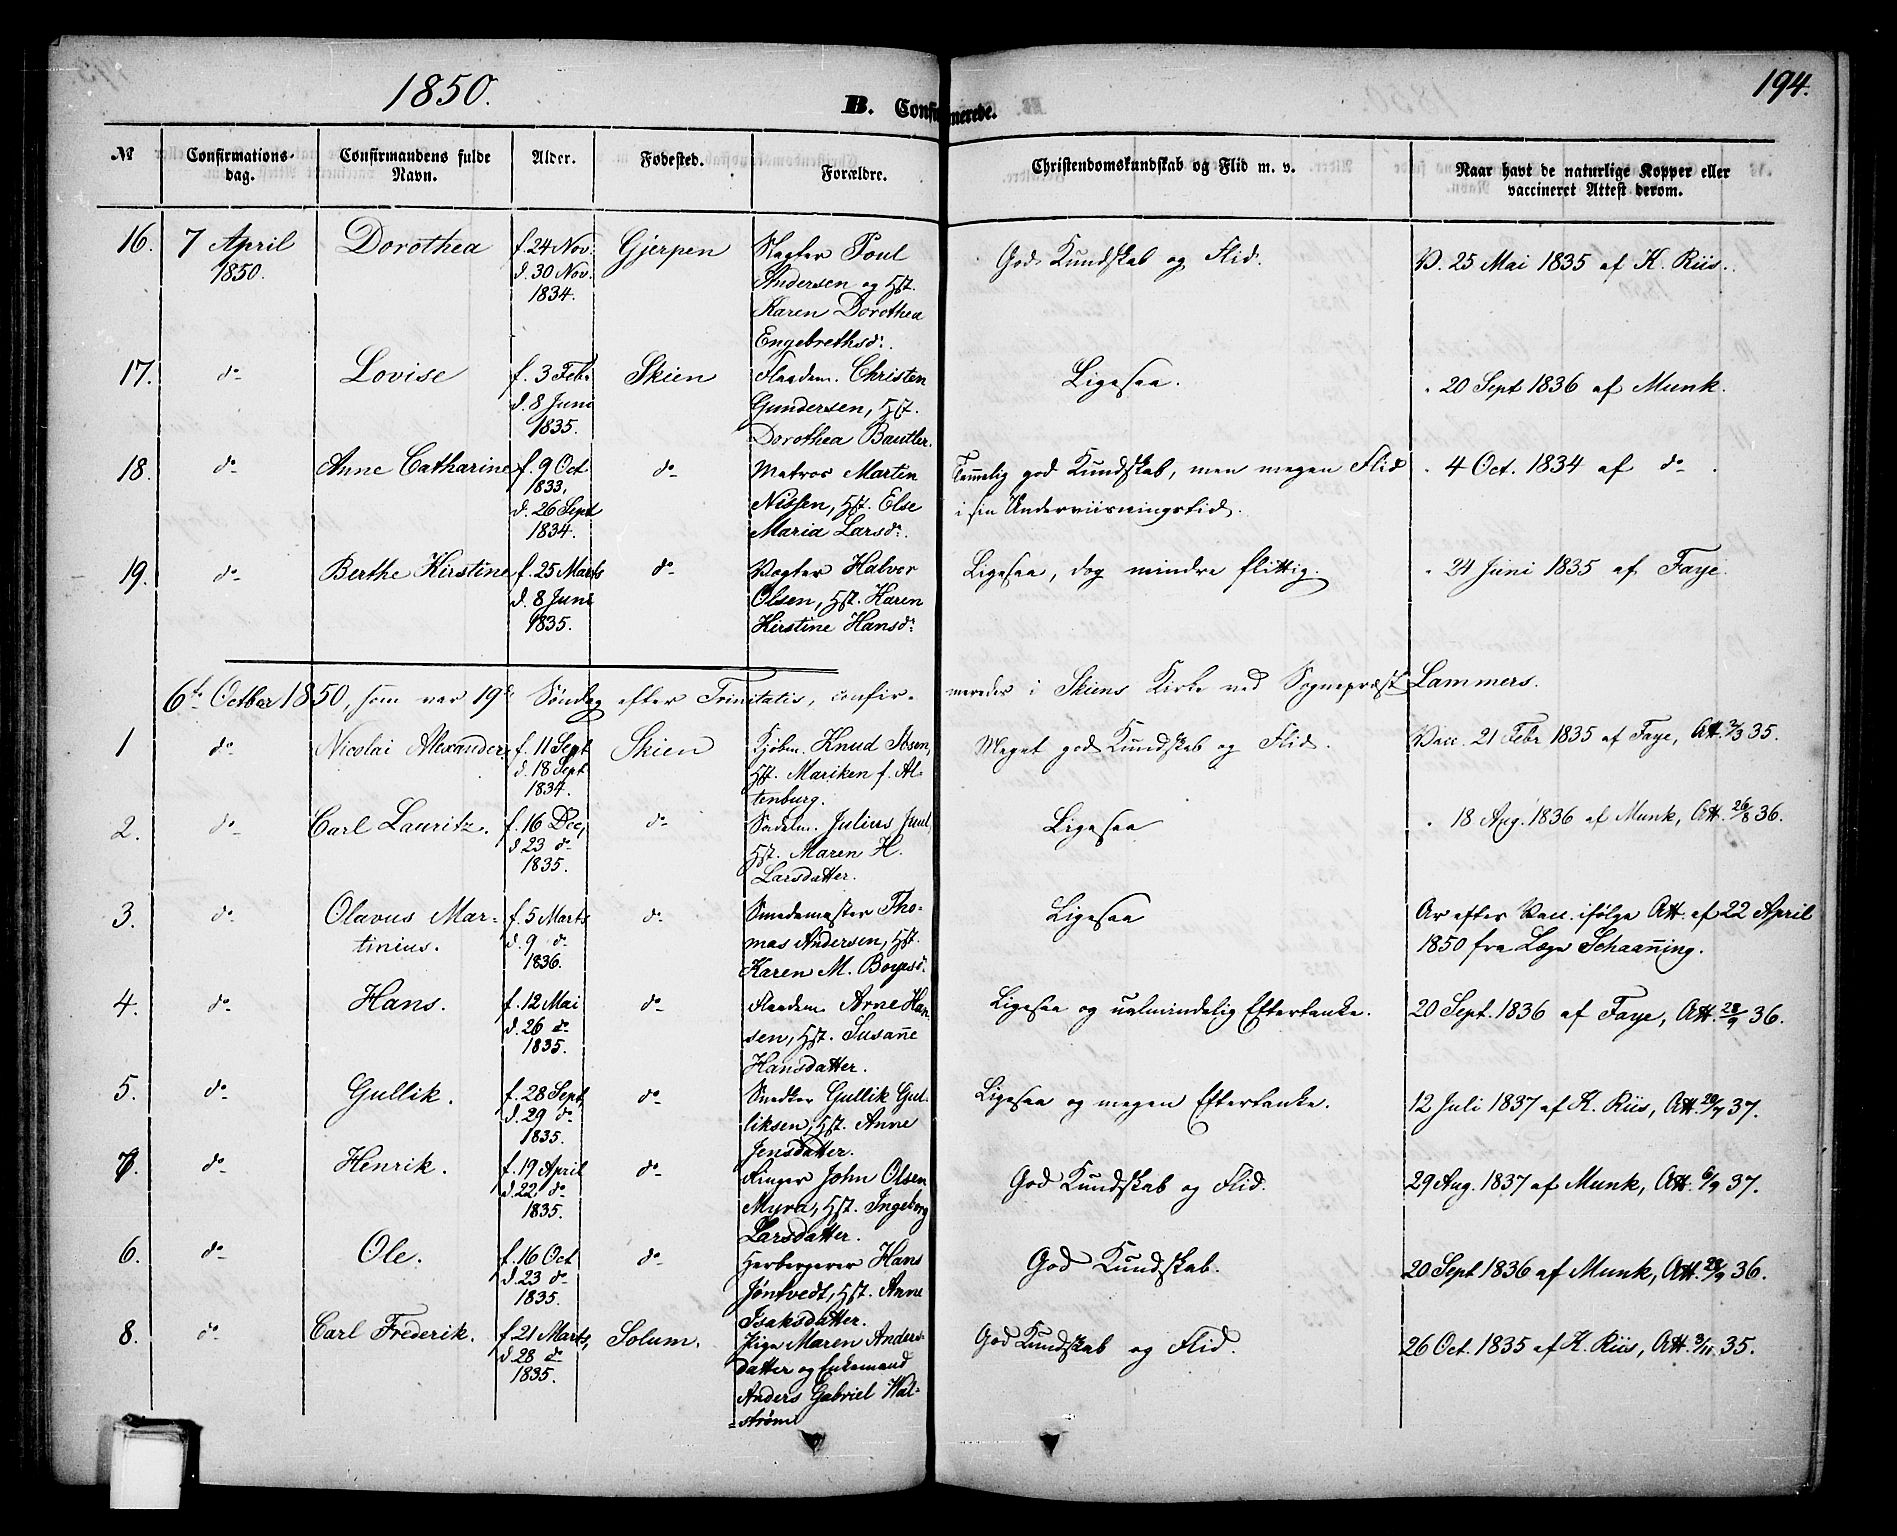 1850.
B. Confirmerede.
194.
No
Confirmations-
dag.
Confirmandens fulde
Navn.
Alder.
Fødested.
Forældre.
Christendomskundskab og Flid m. v.
Naar havt de naturlige Kopper eller
vaccineret Attest derom.
16. 7 April 1850. Dorothea f. 24 Nov. d. 30 Nov. 1834. Gjerpen
Andersen og Hst.
Karen Dorothea
Engebrethsd:
God Kundskab og Flid.
V. 25 Mai 1835 af K. Riis.
17. do Lovise f. 3 Feb. d. 8 Juni 1835. Skien
Flaadem. Christen
Gundersen, Hst.
Dorothea Bautler.
Ligesaa.
" 20 Sept 1836 af Munk.
18. do Anne Catharine f. 9 Oct 1833, d. 26 Sept 1834. do
Matros Martin
Nissen, Hst. Else
Maria Larsd:
Temmelig god Kundskab, men megen Flid
i sin Underviisningstid.
" 4 Oct. 1834 af do
19. do Berthe Kirstine f. 25 Marts d. 8 Juni 1835. do
Vægter Halvor
Olsen, Hst. Karen
Kirstine Hansd:
Ligesaa, dog mindre flittig.
" 24 Juni 1835 af Faye.
6te Octbar 1850, som var 19de Søndag efter Trinitatis, confir-
mereder i Skiens Kirke ved Sognepræst Lammers.
1 do Nicolai Alexander. f. 11 Sept d. 18 Sept 1834. Skien
Kjøbm. Knud Ibsen,
Hst. Mariken f. Al-
tenburg.
Meget god Kundskab og Flid.
Vacc. 21 Febr 1835 af Faye, Att. 2/3 35.
2. do Carl Lauritz. f. 16 Dec, d. 23 do 1835. do
Sadelm. Julius Juul,
Hst. Maren H.
Larsdatter.
Ligesaa
" 18 Aug. 1836 af Munk, Att. 26/8 36.
3. do Olavus Mar-
tinius. f. 5 Marts d. 9 do 1836. do
Smedemester Tho-
mas Andersen, Hst.
Karen M. Boyesd:
Ligesaa
Ar efter Vacc. ifølge Att. af 22 April
1850 fra Læge Schaanning.
4. do Hans. f. 12 Mai d. 26 do 1835. do
Flaadem. Arne Han-
sen, Hst. Susanne
Hansdatter.
Ligesaa og ualmindelig Eftertanke.
20 Sept. 1836 af Faye, Att. 28/9 36.
5. do Gullik. f. 28 Sept, d. 29 do 1835. do
Snedker Gullik Gul-
liksen, Hst. Anne
Jensdatter.
Ligesaa og megen Eftertanke.
12 Juli 1837 af K. Riis, Att. 20/7 37.
7. do Henrik. f. 19 April d. 22 do 1835. do
Ringer John Olsen
Myra, Hst. Ingeborg
Larsdatter.
God Kundskab og Flid.
29 Aug. 1837 af Munk, Att. 6/9 37.
6. do Ole. f. 16 Oct d. 23 do 1835. do
Herbergerer Hans
Jøntvedt, Hst. Anne
Isaksdatter.
God Kundskab.
20 Sept 1836 af Munk, Att. 28/9 36.
8. do Carl Frederik. f. 21 Marts, d. 28 do 1835. Solum.
Pige Maren Anders-
datter og Enkemand
Anders Gabriel Wal-
strøm
God Kundskab og Flid.
26 Oct. 1835 af K. Riis, Att. 3/11 35.